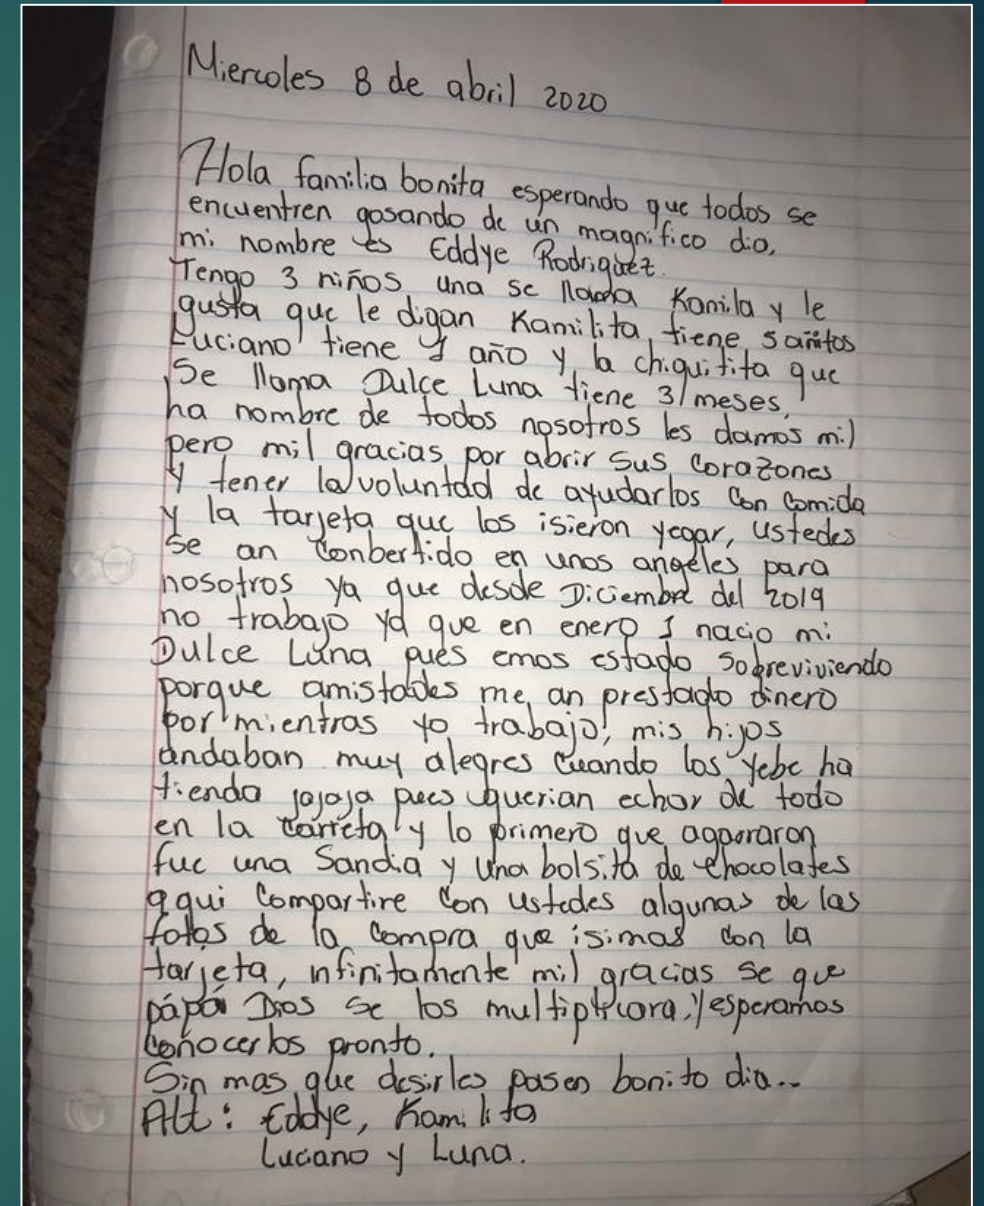 Miercoles 8 de abril 2020
Hola familia bonita esperando que todos se
encuentren gosando de un magnifico dia,
mi nombre es Eddye Rodriguez.
Tengo 3 niños una se llama Kamila y le
gusta que le digan Kamilita, tiene 5 añitos
Luciano tiene 1 año y la chiquitita que
Se llama Dulce Luna tiene 3 meses,
ha nombre de todos nosotros les damos mil
pero mil gracias por abrir sus corazones
y tener la voluntad de ayudarlos con comida
y la tarjeta que los isieron yegar, ustedes
se an conbertido en unos angeles para
nosotros ya que desde Diciembre del 2019
no trabajo ya que en enero 1 nacio mi
Dulce Luna pues emos estado sobreviviendo
porque amistades me an prestado dinero
por mientras yo trabajo, mis hijos
andaban muy alegres cuando los yebe ha
tienda jajaja pues querian echar de todo
en la carreta y lo primero que agarraron
fue una Sandia y una bolsita de chocolates
aqui compartire con ustedes algunas de las
fotos de la compra que isimas con la
tarjeta, infinitamente mil gracias se que
pápá Dios se los multiplicara, y esperamos
conocerlos pronto.
Sin mas que desirles pasen bonito dia..
Att: Eddye, Kamilita
Luciano y Luna.